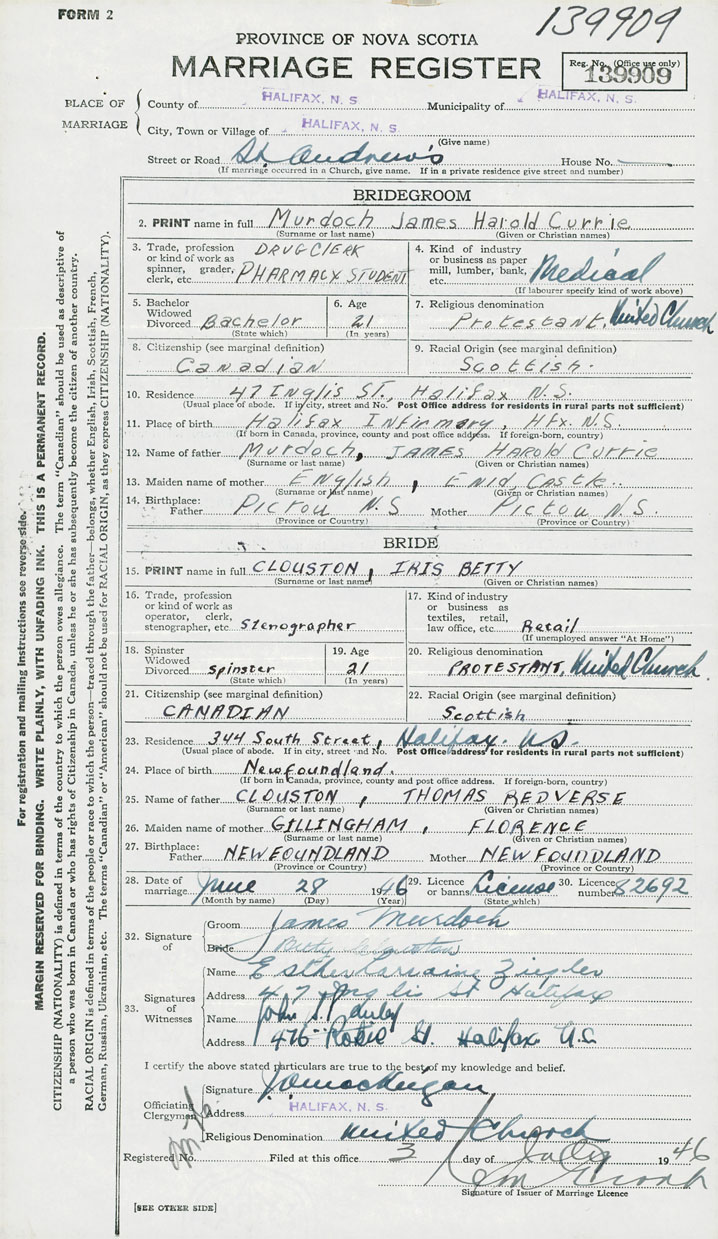 FORM 2
139909
PROVINCE OF NOVA SCOTIA
MARRIAGE REGISTER
Reg. No. (Office use only)
139909
PLACE OF MARRIAGE
County of HALIFAX, N. S. Municipality of HALIFAX, N. S.
City, Town or Village of HALIFAX, N. S.
(Give name)
Street or Road St. Andrew's House No.
(If marriage occurred in a Church, give name. If in a private residence give street and number)
BRIDEGROOM
2. PRINT name in full Murdoch James Harold Currie
(Surname or last name) (Given or Christian names)
3. Trade, profession or kind of work as spinner, grader, clerk, etc. DRUG CLERK PHARMACY STUDENT
4. Kind of industry or business as paper mill, lumber, bank, etc. Medical
(If labourer specify kind of work above)
5. Bachelor Widowed Divorced Bachelor
(State which)
6. Age 21
(In years)
7. Religious denomination Protestant. United Church
8. Citizenship (see marginal definition) Canadian
9. Racial Origin (see marginal definition) Scottish.
10. Residence 47 Inglis ST., Halifax N.S.
(Usual place of abode. If in city, street and No. Post Office address for residents in rural parts not sufficient)
11. Place of birth Halifax Infirmary, Hfx. N.S.
(If born in Canada, province, county and post office address. If foreign-born, country)
12. Name of father Murdoch, JAMES Harold Currie
(Surname or last name) (Given or Christian names)
13. Maiden name of mother English, Enid Castle.
(Surname or last name) (Given or Christian names)
14. Birthplace: Father Pictou N.S Mother Pictou N.S.
(Province or Country) (Province or Country)
BRIDE
15. PRINT name in full CLOUSTON, IRIS BETTY
(Surname or last name) (Given or Christian names)
16. Trade, profession or kind of work as operator, clerk, stenographer, etc. Stenographer
17. Kind of industry or business as textiles, retail, law office, etc. Retail
(If unemployed answer "At Home")
18. Spinster Widowed Divorced Spinster
(State which)
19. Age 21
(In years)
20. Religious denomination PROTESTANT, United Church.
21. Citizenship (see marginal definition) CANADIAN
22. Racial Origin (see marginal definition) Scottish
23. Residence 344 South Street, Halifax. N.S.
(Usual place of abode. If in city, street and No. Post Office address for residents in rural parts not sufficient)
24. Place of birth Newfoundland.
(If born in Canada, province, county and post office address. If foreign-born, country)
25. Name of father CLOUSTON, THOMAS REDVERSE
(Surname or last name) (Given or Christian names)
26. Maiden name of mother GILLINGHAM, FLORENCE
(Surname or last name) (Given or Christian names)
27. Birthplace: Father NEWFOUNDLAND Mother NEWFOUNDLAND
(Province or Country) (Province or Country)
28. Date of marriage June 28 1946
(Month by name) (Day) (Year)
29. Licence or banns License
(State which)
30. Licence number 82692
32. Signature of
Groom James Murdoch
Bride Betty Clouston
33. Signatures of Witnesses
Name Esther Lorraine Ziegler
Address 47 Inglis St Halifax
Name John
Address 476 St. Halifax N.S.
I certify the above stated particulars are true to the best of my knowledge and belief.
Officiating Clergyman
Signature
Address HALIFAX, N. S.
Religious Denomination United Church
Registered No. Filed at this office 3 day of July 1946
Signature of Issuer of Marriage Licence
[SEE OTHER SIDE]
For registration and mailing instructions see reverse side.
MARGIN RESERVED FOR BINDING. WRITE PLAINLY, WITH UNFADING INK. THIS IS A PERMANENT RECORD.
CITIZENSHIP (NATIONALITY) is defined in terms of the country to which the person owes allegiance. The term "Canadian" should be used as descriptive of
a person who was born in Canada or who has rights of Citizenship in Canada, unless he or she has subsequently become the citizen of another country.
RACIAL ORIGIN is defined in terms of the people or race to which the person—traced through the father—belongs, whether English, Irish, Scottish, French,
German, Russian, Ukrainian, etc. The terms "Canadian" or "American" should not be used for RACIAL ORIGIN, as they express CITIZENSHIP (NATIONALITY).